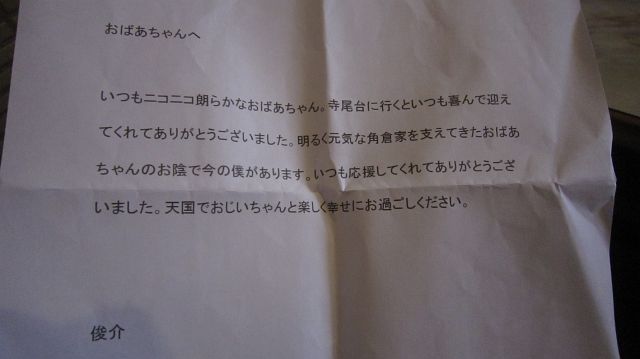 おばあちゃんへ
いつもニコニコ朗らかなおばあちゃん。寺尾台に行くといつも喜んで迎え
てくれてありがとうございました。明るく元気な角倉家を支えてきたおばあ
ちゃんのお陰で今の僕があります。いつも応援してくれてありがとうござ
いました。天国でおじいちゃんと楽しく幸せにお過ごしください。
俊介